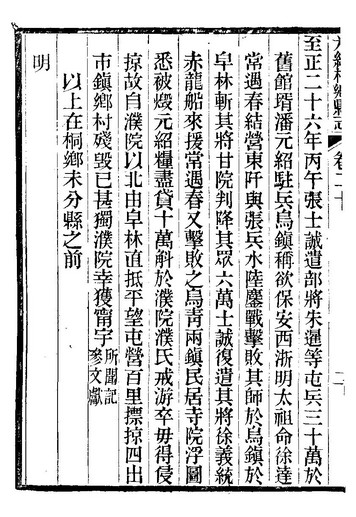 至正二十六年丙午張士誠遣部將朱暹等屯兵三十萬於
舊館壻潘元紹駐兵烏鎮稱欲保安西浙明太祖命徐達
常遇春結營東阡與張兵水陸鏖戰擊敗其師於烏鎮於
阜林斬其將甘院判降其眾六萬士誠復遣其將徐義統
赤龍船來援常遇春又擊敗之烏靑兩鎮民居寺院浮圖
悉被燬元紹糧盡貸十萬斛於濮院濮氏戒游卒毋得侵
掠故自濮院以北由阜林直抵平望屯營百里摽掠四出
市鎮鄉村殘毀已甚獨濮院幸獲甯宇所聞記
參文獻
以上在桐鄉未分縣之前
明
卷二十